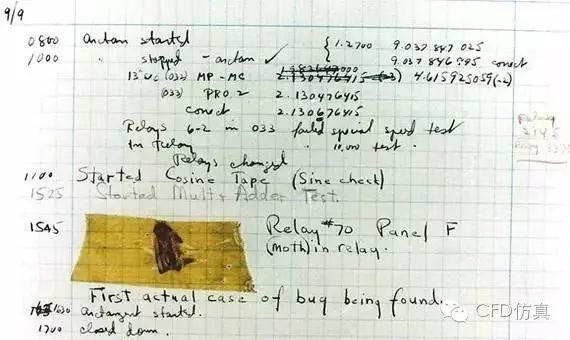 9/9
0800 antan started
1000 " stopped - antan ✓ { 1.2700 9.037 847 025
9.037 846 995 conect
13"uc (032) MP - MC 2.130476415 (-3) 4.615925059(-2)
(033) PRO 2 2.130476415
conect 2.130676415
Relays 6-2 in 033 failed special speed test
in Relay " 10,000 test .
Relay
2145
Relay 3370
Relays changed
1100 Started Cosine Tape (Sine check)
1525 Started Mult + Adder Test.
1545 Relay #70 Panel F
(Moth) in relay.
First actual case of bug being found.
1630 antangent started.
1700 closed down.
CFD仿真